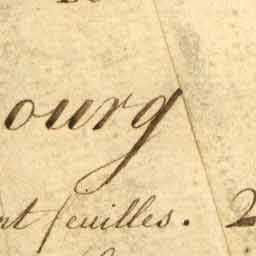 ourg
nt feuilles. 2